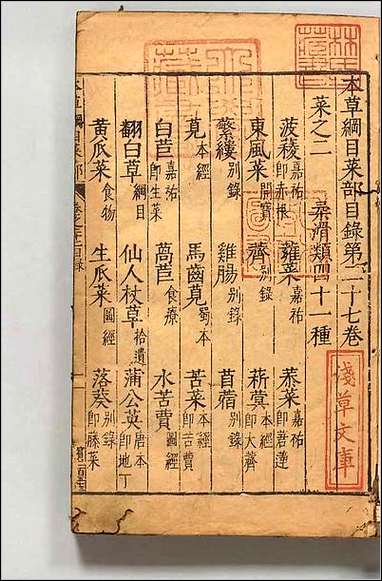 本草綱目菜部目錄第二十七卷
菜之二　柔滑類四十一種
菠薐嘉祐即赤根　蕹菜嘉祐　菾菜嘉祐即莙薘
東風菜開寶　薺別錄　菥蓂本經即大薺
蘩縷別錄　雞腸別錄　苜蓿別錄
莧本經　馬齒莧蜀本　苦菜本經即苦蕒
白苣嘉祐即生菜　萵苣食療　水苦蕒圖經
翻白草綱目　仙人杖草拾遺　蒲公英唐本即地丁
黃瓜菜食物　生瓜菜圖經　落葵別錄即藤菜
淺草文庫